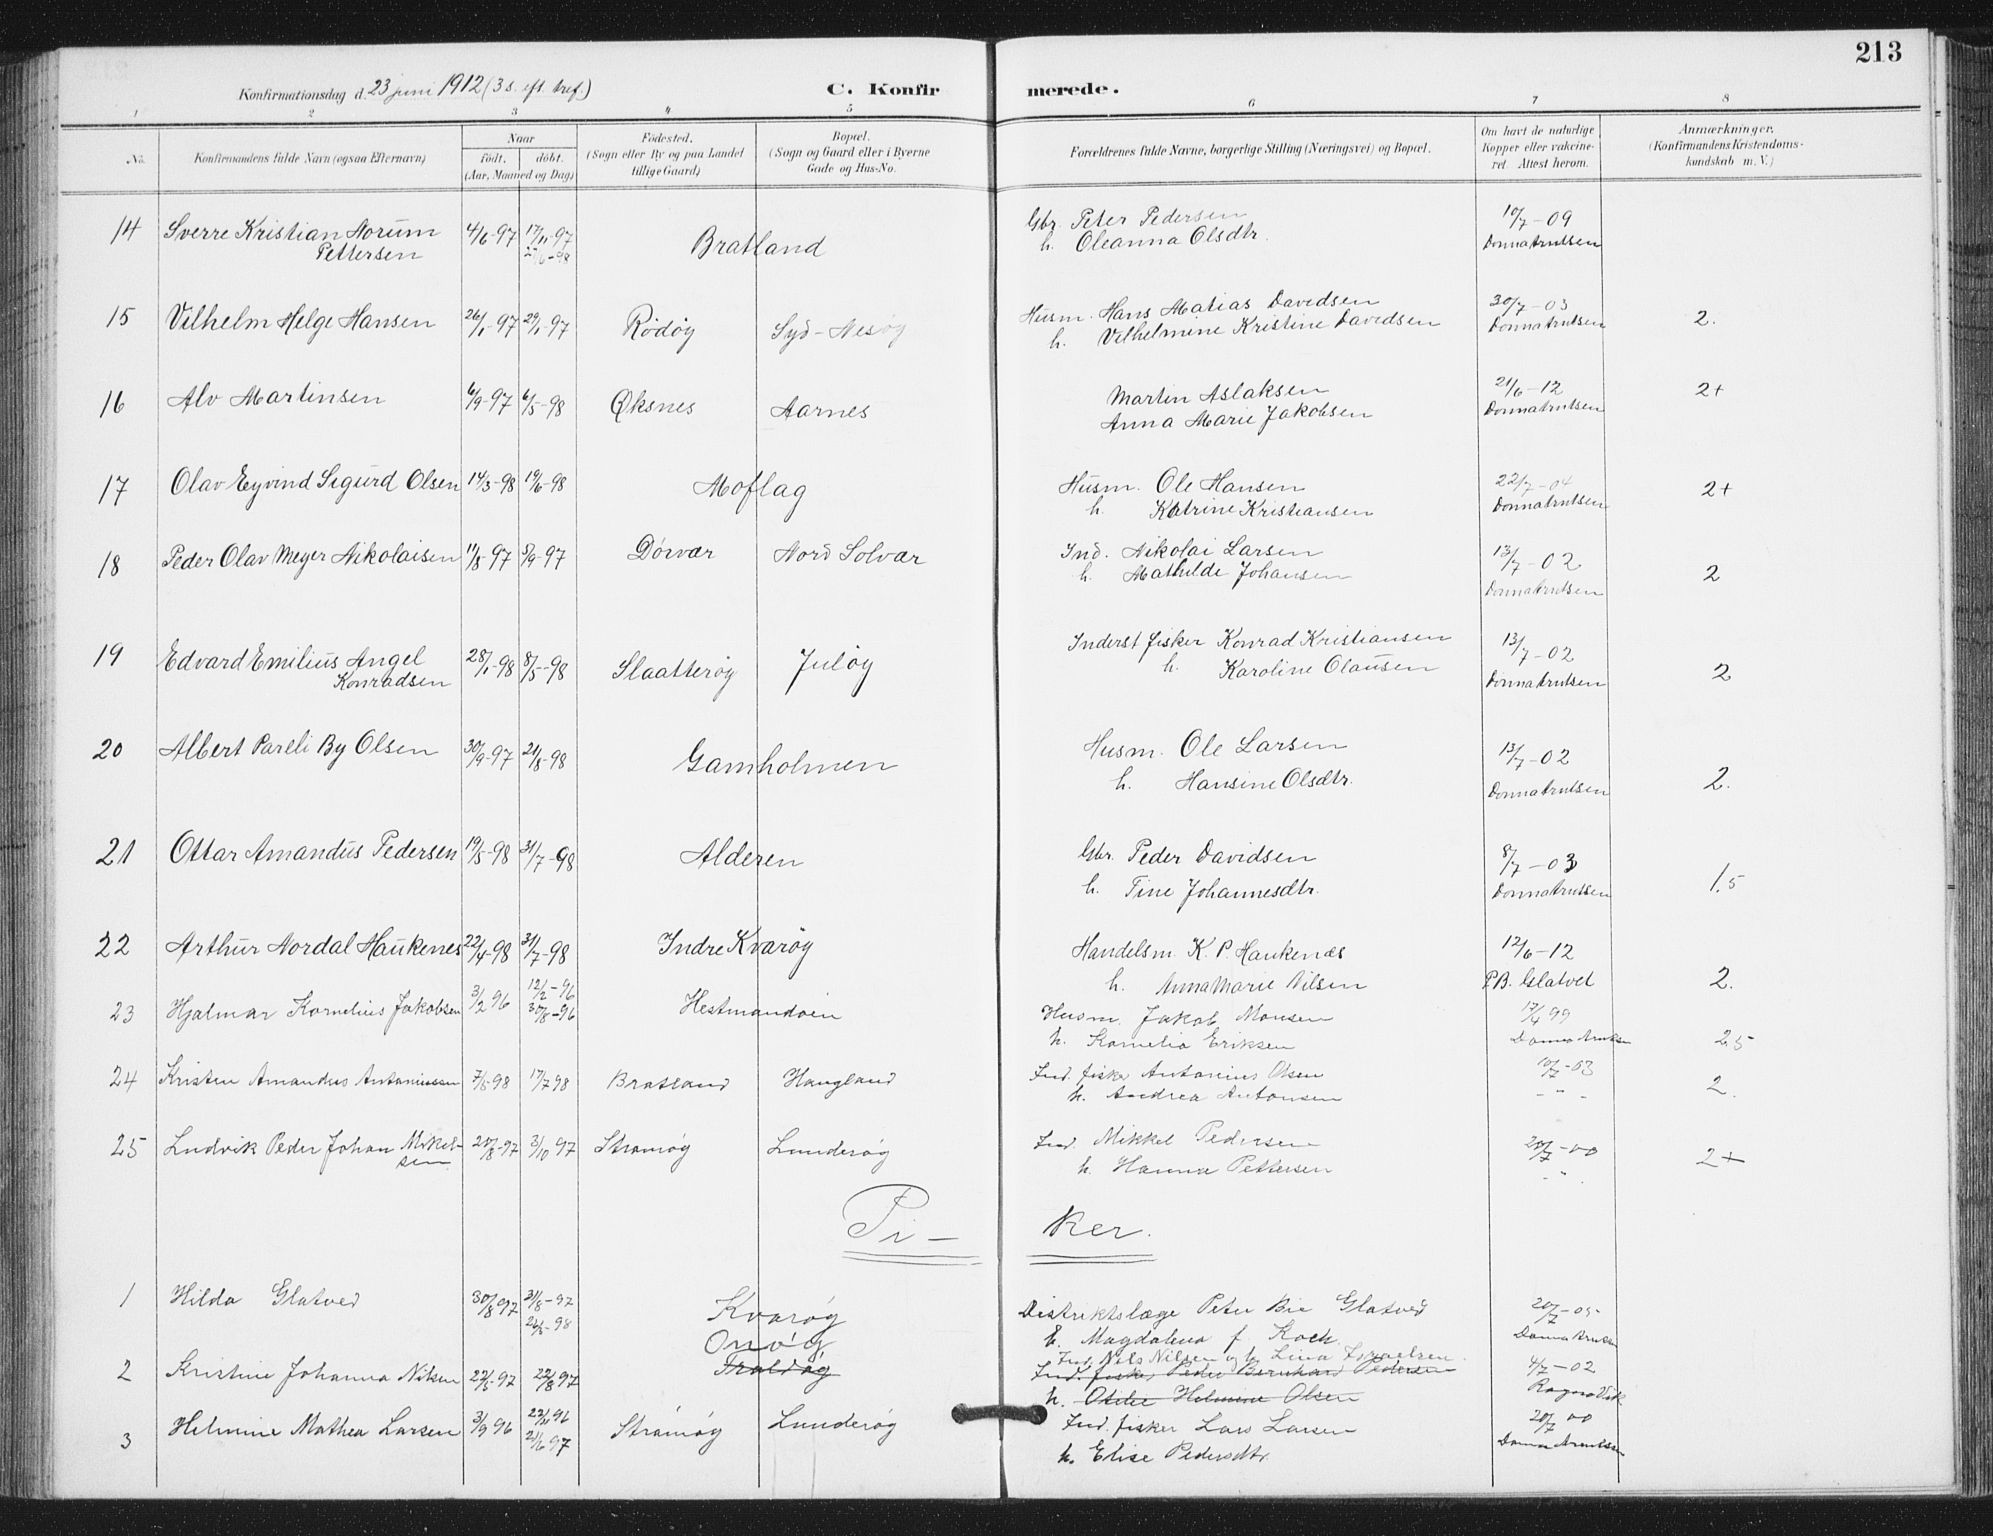 213
Konfirmationsdag d. 23 juni 1912 (3 s. eft. tref.)
C. Konfirmerede.
1 2 3 4 5 6 7 8
No. Konfirmandens fulde Navn (ogsaa Efternavn) Naar født. døbt. (Aar, Maaned og Dag) Fødested. (Sogn eller By og paa Landet tillige Gaard) Bopæl. (Sogn og Gaard eller i Byerne Gade og Hus-No. Forældrenes fulde Navne, borgerlige Stilling (Næringsvei) og Bopæl. Om havt de naturlige Kopper eller vakcineret. Attest herom. Anmærkninger. (Konfirmandens Kristendomskundskab m. V.)
14 Sverre Kristian Norum 4/6-97 17/11-97 Bratland Gbr. Peter Pedersen 10/7-09
Pettersen h. Oleanna Olsdtr. Donna Arntsen
15 Vilhelm Helge Hansen 26/1-97 29/1-97 Rödöy Syd-Nesöy Husm. Hans Matias Davidsen 30/7-03 2.
h. Vilhelmine Kristine Davidsen Donna Arntsen
16 Alv Martinsen 6/9-97 6/5-98 Øksnes Aarnes Martin Aslaksen 21/6-12 2+
Anna Marie Jakobsen Donna Arntsen
17 Olav Eyvind Sigurd Olsen 14/3-98 19/6-98 Moflag Husm. Ole Hansen 22/7-04 2+
h. Katrine Kristiansen Donna Arntsen
18 Peder Olav Meyer Nikolaisen 11/8-97 5/9-97 Dörvær Nord Solvær Ind. Nikolai Larsen 13/7-02 2
h. Mathilde Johansen Donna Arntsen
19 Edvard Emilius Angel 28/1-98 8/5-98 Slaatteröy Julöy Inderst fisker Konrad Kristiansen 13/7-02 2
Konradsen h. Karoline Olausen Donna Arntsen
20 Albert Pareli By Olsen 30/9-97 21/8-98 Gamholmen Husm. Ole Larsen 13/7-02 2.
h. Hansine Olsdtr. Donna Arntsen
21 Ottar Amandus Pedersen 19/5-98 31/7-98 Alderen Gbr. Peder Davidsen 8/7-03 1.5
h. Tine Johannesdtr. Donna Arntsen
22 Arthur Nordal Haukenes 22/4-98 31/7-98 Indre Kvaröy Handelsm. K. P. Haukenæs 12/6-12 2.
h. Anna Marie Nilsen P.B. Glatvet
23 Hjalmar Kornelius Jakobsen 3/2 96 12/2-96 30/8-96 Hestmandöien Husm. Jakob Monsen 17/4 99 2.5
h. Kornelia Eriksen Donna Arntsen
24 Kristen Amandus Antoniussen 7/5-98 17/7 98 Bratland Haugland Ind. fisker Antonius Olsen 10/7-03 2.
h. Andrea Antonsen - " -
25 Ludvik Peder Johan Mikkelsen 20/8-97 3/10 97 Strömöy Lunderöy Ind. Mikkel Pedersen 20/7-00 2+
h. Hanna Pettersen - " -
Piker.
1 Hilda Glatved 30/8 97 31/8-97 Kvaröy Distriktslæge Peter Bie Glatved 20/7-05
h. Magdalena f. Koch Donna Arntsen
Onöy Ind. Nils Nilsen og h. Lina Israelsen
2 Kristine Johanna Nilsen 22/5-97 22/8 97 Traldöy Ind. fisker Peder Bernhard Pedersen 4/7-02
h. Otilie Helmine Olsen Ragna Vik
3 Helmine Mathea Larsen 3/9 96 22/11 96 21/6 97 Strömöy Lunderöy Ind. fisker Lars Larsen 20/7 00
h. Elise Pedersdtr. Donna Arntsen